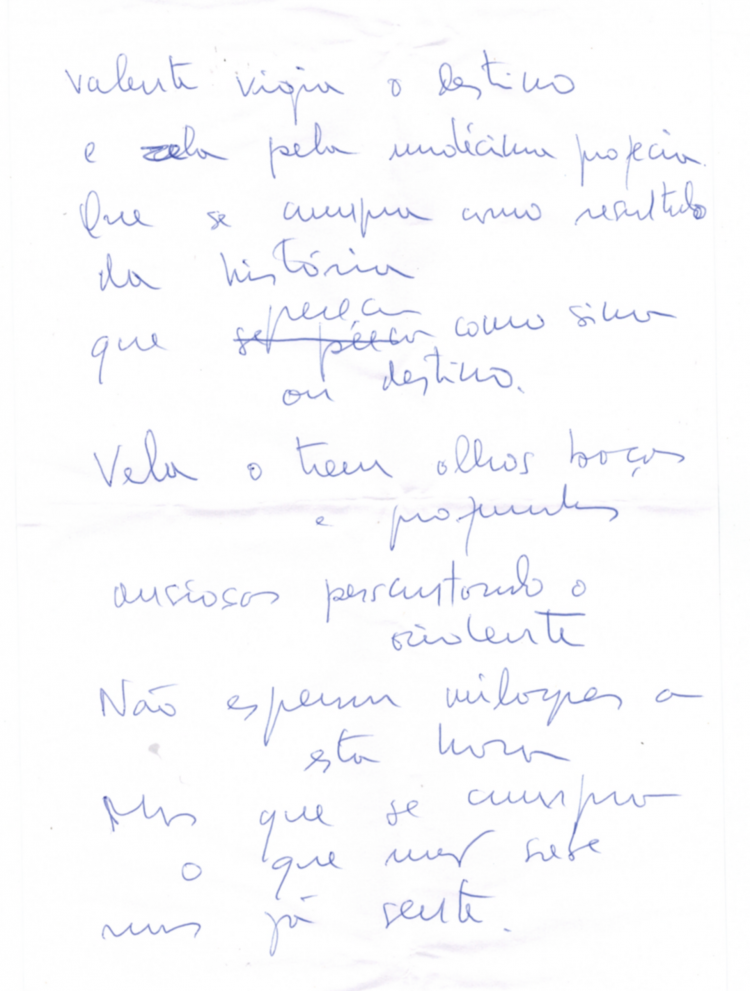 valente vigia o destino
e zela pela undécima profecia.
Que se cumpra como resultado
da história
pereça
que se pereça como sina
ou destino.
Vela o trem olhos baços
e profundos
ansiosos perscrutando o
ocidente
Não esperam milagres a
esta hora
Mas que se cumpra
o que não sabe
mas já sente.